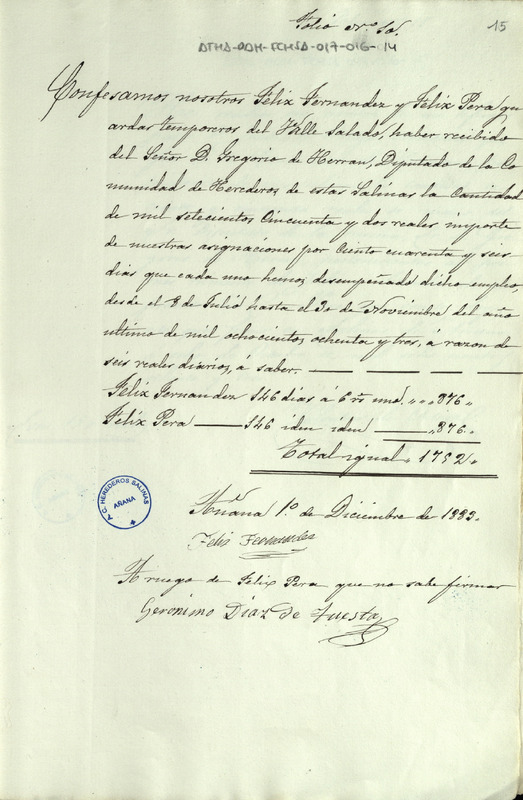 Folio nº 10.
15
ATHA-DAH-FCHSA-017-016-14
Confesamos nosotros Félix Fernandez y Félix Pera, gu
ardas temporeros del Valle Salado, haber recibido
del Señor D. Gregorio de Herran, Diputado de la Co
munidad de Herederos de estas Salinas la Cantidad
de mil setecientos Cincuenta y dos reales importe
de nuestras asignaciones por Ciento cuarenta y seis
dias que cada uno hemos desempeñado dicho empleo,
desde el 8 de Julio hasta el 30 de Noviembre del año
ultimo de mil ochocientos ochenta y tres, á razon de
seis reales diarios, á saber.
Félix Fernandez 146 dias á 6 rs uno " " 876 "
Félix Pera 146 idem idem " 876 "
Total igual " 1752 "
Añana 1º de Diciembre de 1883.
Felix Fernandez
A ruego de Felix Pera que no sabe firmar
Gerónimo Díaz de Tuesta
C. HEREDEROS SALINAS
AÑANA